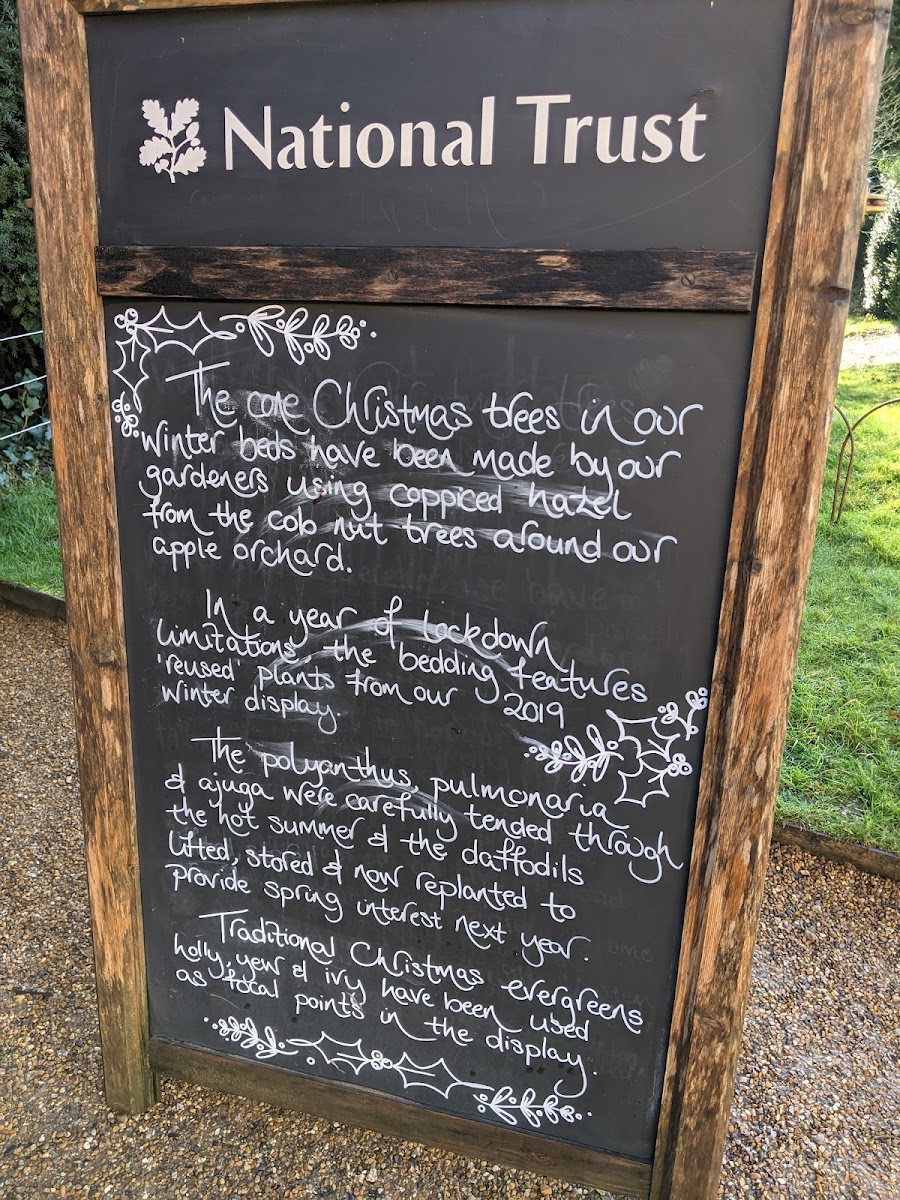 National Trust
The cone Christmas trees in our
winter beds have been made by our
gardeners using coppiced hazel
from the cob nut trees around our
apple orchard.
In a year of lockdown
limitations the bedding features
'reused' plants from our 2019
winter display.
The polyanthus, pulmonaria
& ajuga were carefully tended through
the hot summer & the daffodils
lifted, stored & now replanted to
provide spring interest next year.
Traditional Christmas evergreens
holly, yew & ivy have been used
as focal points in the display.